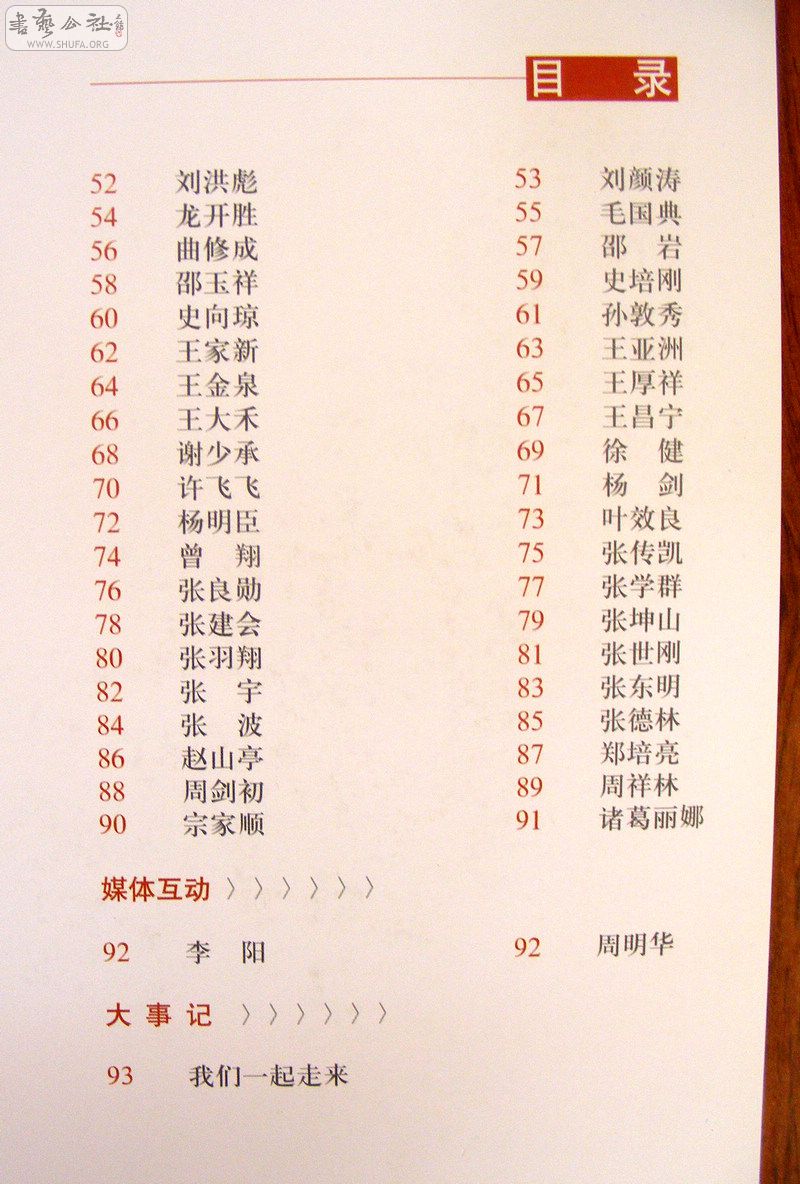 書藝公社
WWW.SHUFA.ORG
目 录
52 刘洪彪 53 刘颜涛
54 龙开胜 55 毛国典
56 曲修成 57 邵 岩
58 邵玉祥 59 史培刚
60 史向琼 61 孙敦秀
62 王家新 63 王亚洲
64 王金泉 65 王厚祥
66 王大禾 67 王昌宁
68 谢少承 69 徐 健
70 许飞飞 71 杨 剑
72 杨明臣 73 叶效良
74 曾 翔 75 张传凯
76 张良勋 77 张学群
78 张建会 79 张坤山
80 张羽翔 81 张世刚
82 张 宇 83 张东明
84 张 波 85 张德林
86 赵山亭 87 郑培亮
88 周剑初 89 周祥林
90 宗家顺 91 诸葛丽娜
媒体互动 〉〉〉〉〉〉
92 李 阳 92 周明华
大 事 记 〉〉〉〉〉〉
93 我们一起走来